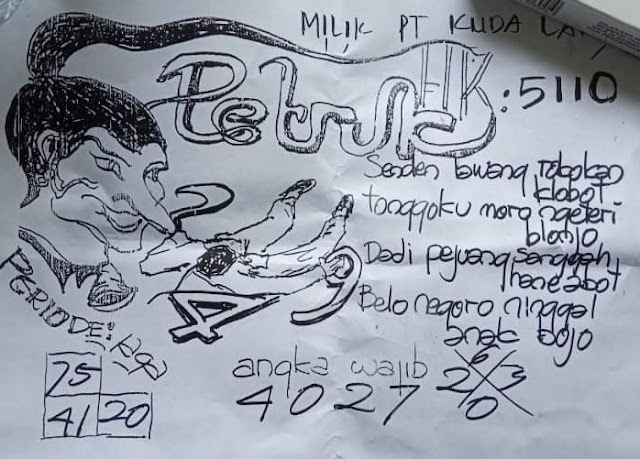 MILIK PT KUDA
Petruk
HK : 5110
Senden lawang rokokan
klobot
tonggoku moro ngeteri
blonjo
Dadi pejuang sanggah
hane abot
Belo negoro ninggal
anak bojo
2
4 9
PERIODE:
75
41 20
angka wajib
4027
6
2 3
0